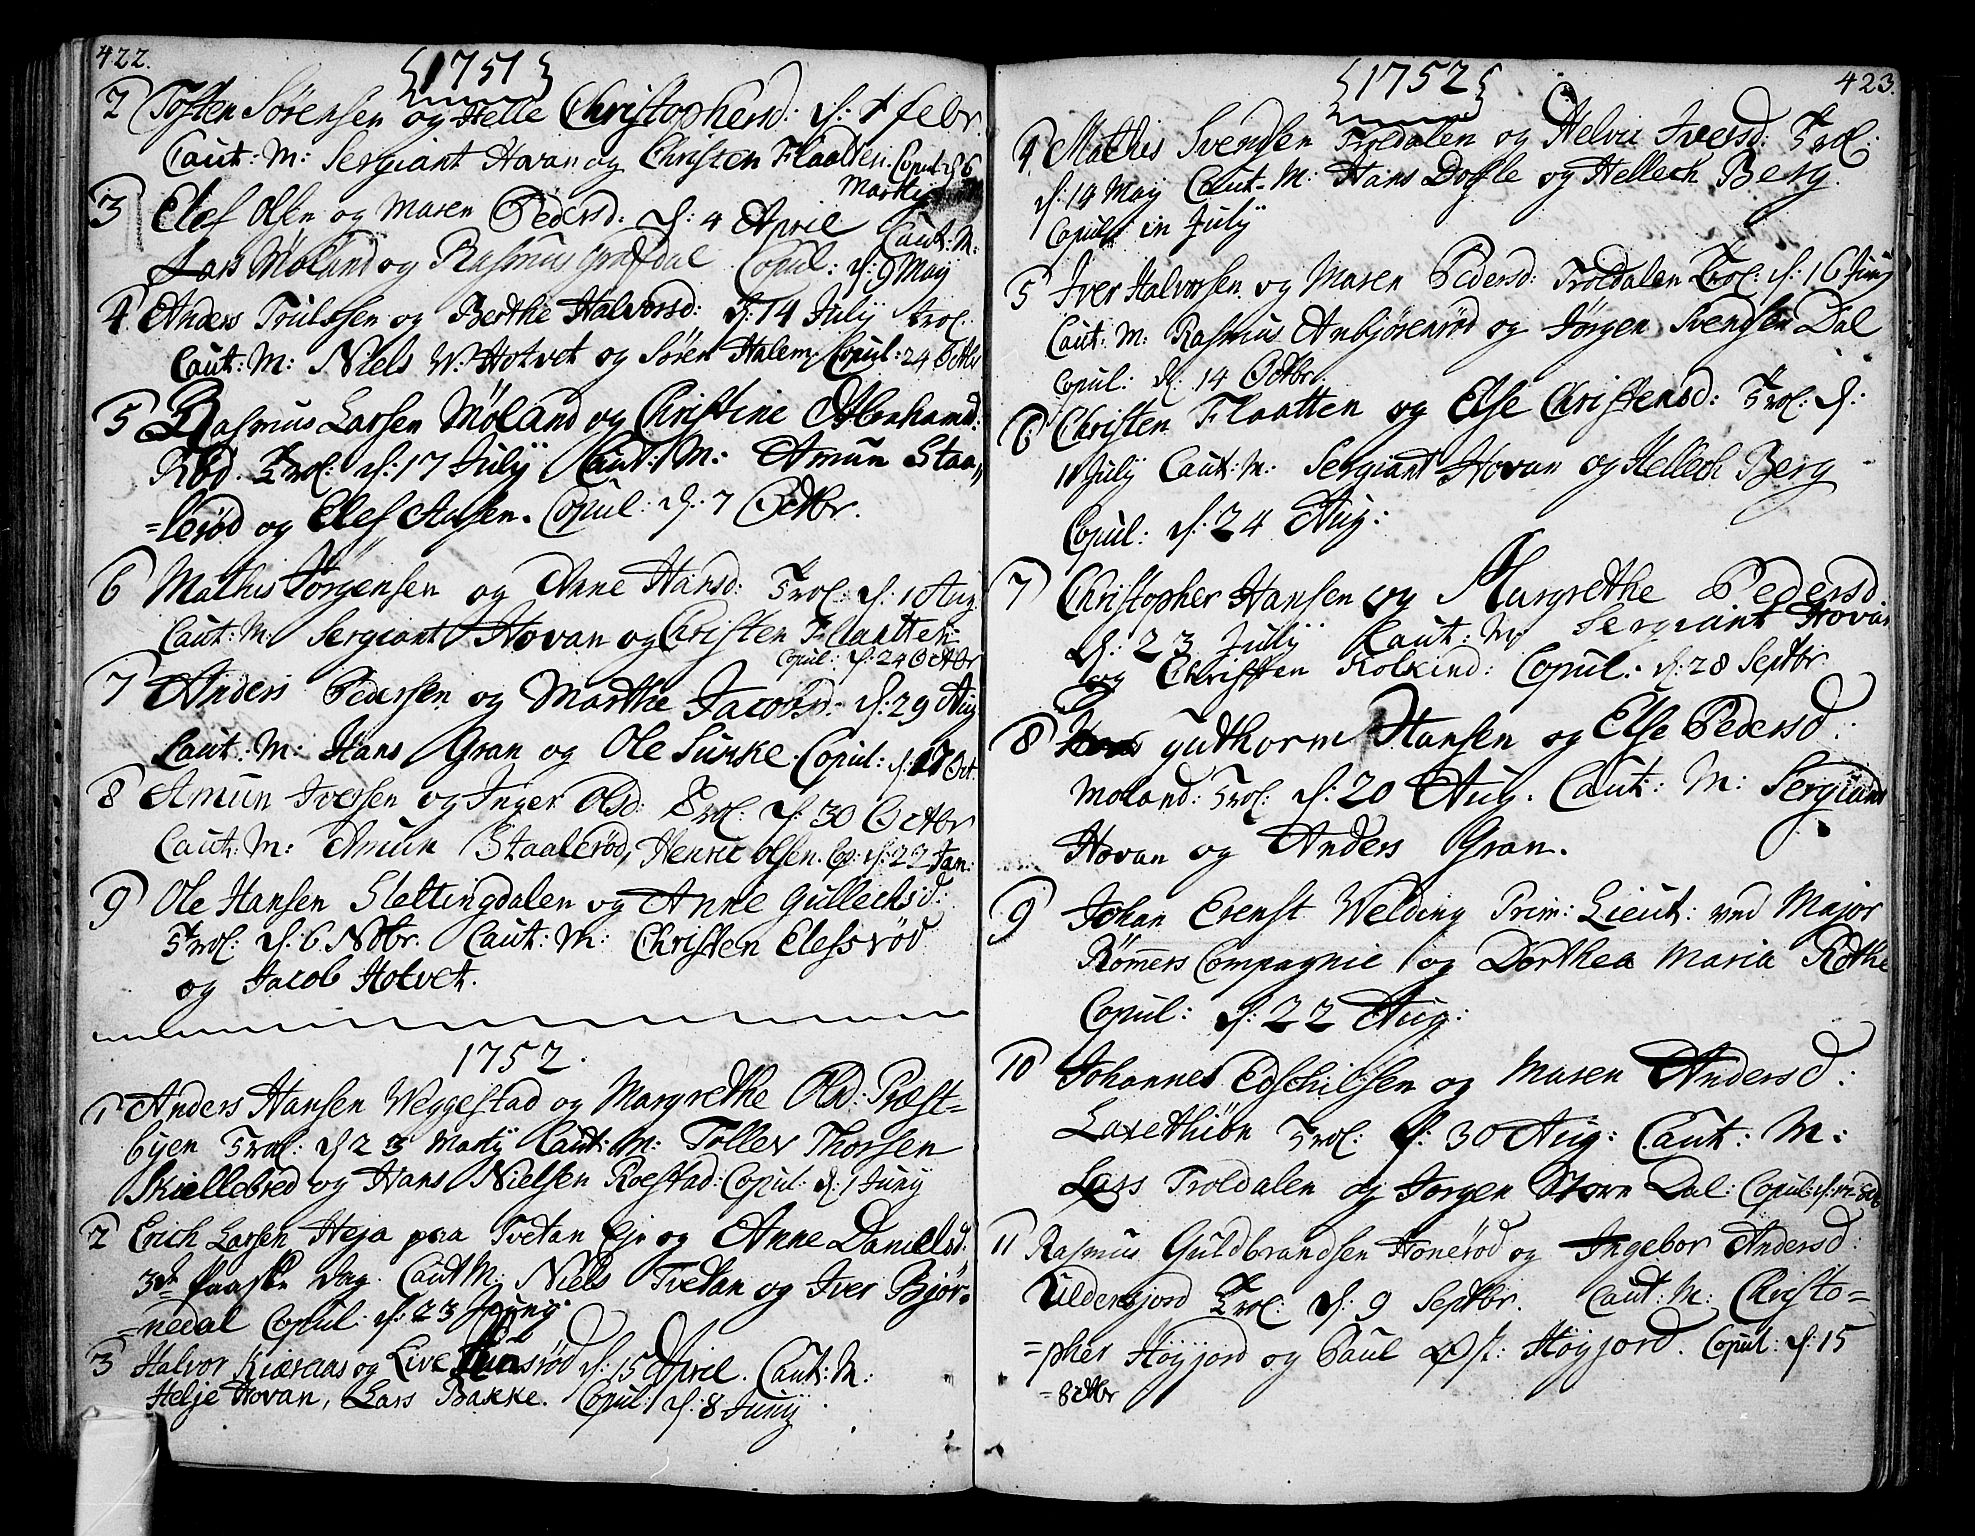 422.
1751
2 Tosten Sørensen og Helle Christophersd: d: 1 Febr
Caut: M: Sergiant Hovan og Christen Flaatten. Copul: d 6
Martij
3 Elef Olsen og Maren Pedersd: d: 4 April Caut: M:
Lars Møland og Rasmus Grafdal Copul: d: 9 Maÿ
4 Anders Trulssen og Berthe Halvorsd: d: 14 Julÿ trol.
Caut: M: Niels W: Hotvet og Søren Halem. Copul: 24 Octbr
5 Rasmus Larsen Møland og Christine Abrahamsd:
Rød. Trol: d: 17 Julÿ Caut: M: Amun Staa„
=lerød og Elef Aasen. Copul: d: 7 Octbr.
6 Mathis Jørgensen og Anne Hansd: Trol: d: 1 Aug
Caut: M: Sergiant Hovan og Christen Flaatten
Copul: d: 24 Octbr
7 Anders Pedersen og Marthe Jacobsd: d: 29 Aug
Caut: M: Hans Gran og Ole Sunke. Copul: d: 17 Oct.
8 Amun Iversen og Inger Olsd: Trol: d: 30 Octbr
Caut: M: Amun Staalerød, Henric Olsen. Cop: d: 22 Jan:
9 Ole Hansen Sleltingdalen og Anne Gullechsd:
Trol: d: 6 Nobr. Caut: M: Christen Elefsrød
og Jacob Hotvet.
1752.
1 Anders Hansen Weggestad og Margrethe Olsd: Præst=
byen Trol: d 23 Martÿ Caut: M: Tollev Thorsen
Skiellebred og Hans Nielsen Roestad: Copul: d: 1 Junÿ
2 Erich Larsen Heja paa Tvetan Eje og Anne Danielsd:
3de Paaske Dag. Caut M: Niels Tvetan og Iver Bjør=
=nedal Copul: d: 23 Junÿ.
3 Halvor Kiæraas og Live d: 15 April. Caut: M:
Helje Hovan, Lars Bakke. Copul: d: 8 Junÿ

423.
1752
4 Mathis Svendsen Troldalen og Helvie Iversd: Trol:
d: 14 Maÿ Caut: M: Hans Dofle og Hellech Berg.
Copul: in Julÿ
5 Iver Halvorsen og Maren Pedersd: Troldalen Trol: d: 16 Junÿ
Caut: M: Rasmus Anbjørnrød og Jørgen Svendsen Dal
Copul: d: 14 Octbr.
6 Christen Flaatten og Else Christensd: Trol: d:
11 Julÿ Caut: M: Sergiant Hovan og Hellech Berg
Copul: d: 24 Aug:
7 Christopher Hansen og Margrethe Pedersd
d: 23 Julÿ Caut: M: Sergiant Hovan
og Christen Kolkind: Copul: d: 28 Septbr
8 Guthorm Hansen og Else Pedersd:
Moland: Trol: d: 20 Aug. Caut: M: Sergiant
Hovan og Anders Gran.
9 Johan Ernst Welding Prim: Lieut: ved Major
Rømers Compagnie og Dorthea Maria Røthe
Copul: d: 22 Aug:
10 Johannes Edschilsen og Maren Andersd:
Laxethion Trol: d: 30 Aug: Caut: M:
Lars Troldalen og Jorgen Dal: Copul: d: 12
11 Rasmus Guldbrandsen Honerød og Ingebor Andersd:
Kildersjord Trol: d: 9 Septbr. Caut: M: Christo=
=pher Høÿjord og Paul Øst: Høÿjord. Copul: d: 15
=8ctbr